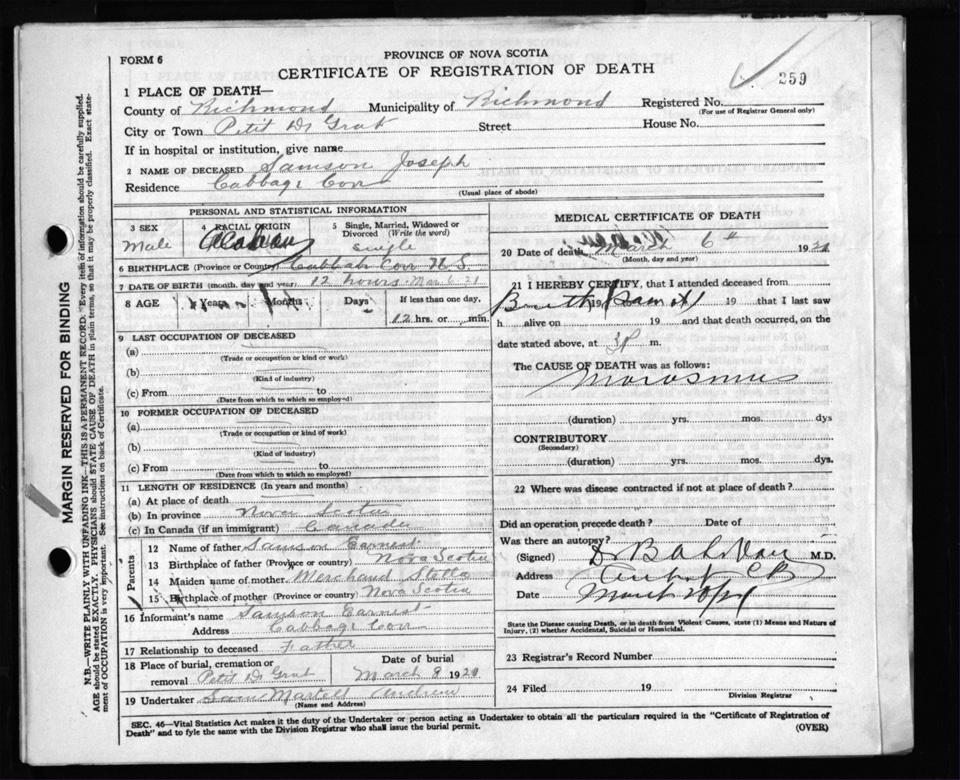 PROVINCE OF NOVA SCOTIA
FORM 6
CERTIFICATE OF REGISTRATION OF DEATH
259
1 PLACE OF DEATH—
County of Richmond Municipality of Richmond Registered No.
(For use of Registrar General only)
City or Town Petit De Grat Street House No.
If in hospital or institution, give name
2 NAME OF DECEASED Samson Joseph
Residence Cabbage Cov
(Usual place of abode)
PERSONAL AND STATISTICAL INFORMATION
3 SEX 4 RACIAL ORIGIN 5 Single, Married, Widowed or Divorced (Write the word)
Male single
6 BIRTHPLACE (Province or Country) Cabbah Cov N S.
7 DATE OF BIRTH (month, day and year) 12 hours Mar 6 21
8 AGE Years Months Days If less than one day,
12 hrs. or min.
9 LAST OCCUPATION OF DECEASED
(a)
(Trade or occupation or kind of work)
(b)
(Kind of industry)
(c) From to
(Date from which to which so employed)
10 FORMER OCCUPATION OF DECEASED
(a)
(Trade or occupation or kind of work)
(b)
(Kind of industry)
(c) From to
(Date from which to which so employed)
11 LENGTH OF RESIDENCE (In years and months)
(a) At place of death
(b) In province Nova Scotia
(c) In Canada (if an immigrant) Canada
Parents
12 Name of father Samson Earnest
13 Birthplace of father (Province or country) Nova Scotia
14 Maiden name of mother Merchand Stella
15 Birthplace of mother (Province or country) Nova Scotia
16 Informant's name Samson Earnest
Address Cabbage Cov
17 Relationship to deceased Father
18 Place of burial, cremation or removal Petit De Grat Date of burial March 8 1921
19 Undertaker Sam Martell Andrew
(Name and Address)
MEDICAL CERTIFICATE OF DEATH
20 Date of death March 6th 1921
(Month, day and year)
21 I HEREBY CERTIFY, that I attended deceased from
19 19 that I last saw
h alive on 19 and that death occurred, on the
date stated above, at m.
The CAUSE OF DEATH was as follows:
Marasmus
(duration) yrs. mos. dys
CONTRIBUTORY
(Secondary)
(duration) yrs. mos. dys.
22 Where was disease contracted if not at place of death?
Did an operation precede death? Date of
Was there an autopsy?
(Signed) Dr B A M.D.
Address C B
Date March
State the Disease causing Death, or in death from Violent Causes, state (1) Means and Nature of
Injury, (2) whether Accidental, Suicidal or Homicidal.
23 Registrar's Record Number
24 Filed 19
Division Registrar
SEC. 46—Vital Statistics Act makes it the duty of the Undertaker or person acting as Undertaker to obtain all the particulars required in the "Certificate of Registration of
Death" and to fyle the same with the Division Registrar who shall issue the burial permit. (OVER)
MARGIN RESERVED FOR BINDING
N.B.—WRITE PLAINLY WITH UNFADING INK—THIS IS A PERMANENT RECORD: Every item of information should be carefully supplied.
AGE should be stated EXACTLY. PHYSICIANS should STATE CAUSE OF DEATH in plain terms, so that it may be properly classified. Exact state-
ment of OCCUPATION is very important. See instructions on back of Certificate.